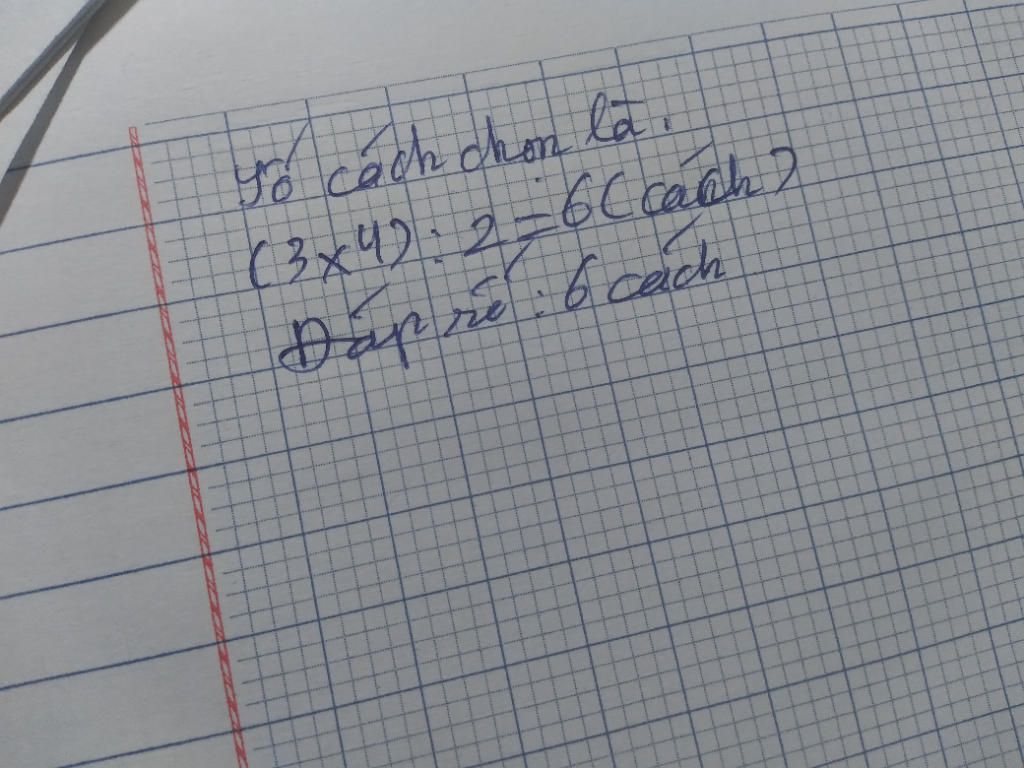 Số cách chọn là.
(3 x 4) : 2 = 6 (cách)
Đáp số : 6 cách